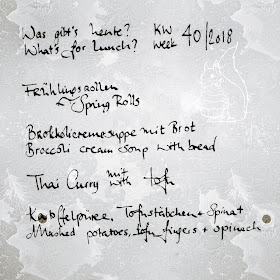 Was gibt's heute? KW
What's for lunch? week 40/2018
Frühlingsrollen
Spring Rolls
Brokkolicremesuppe mit Brot
Broccoli cream soup with bread
Thai Curry mit tofu
with
Kartoffelpüree, Tofustäbchen + Spinat
Mashed potatoes, tofu fingers + spinach